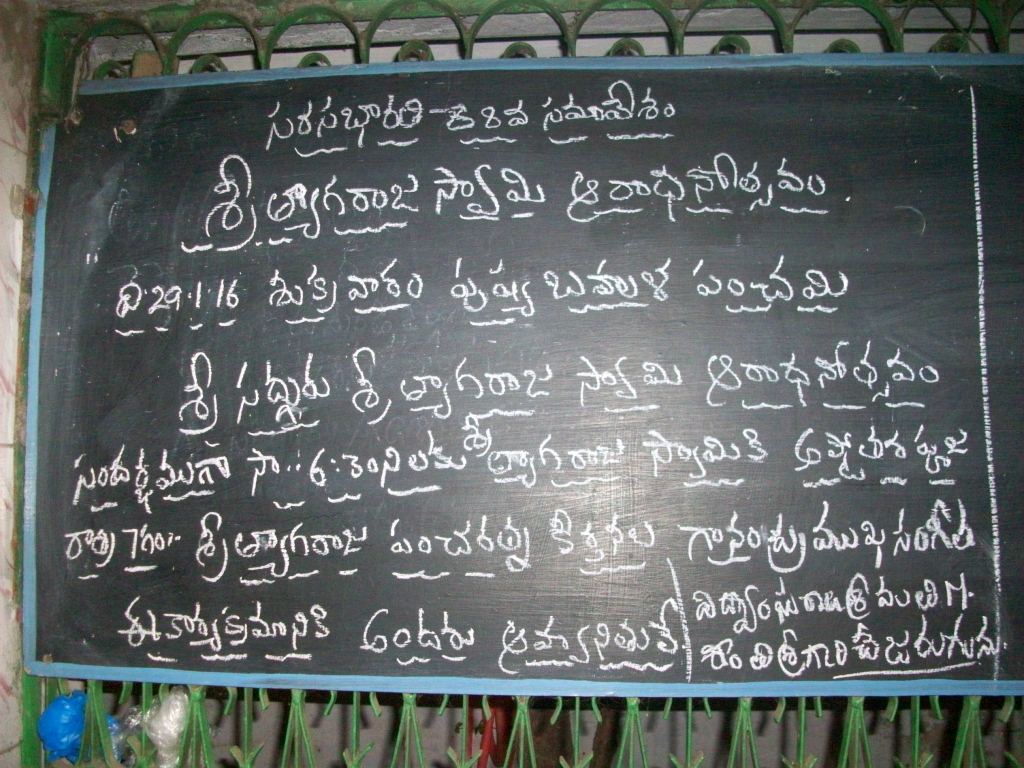 సరసభారతి - 84వ సమావేశం
శ్రీ త్యాగరాజ స్వామి ఆరాధనోత్సవం
ది. 29.1.16 శుక్రవారం పుష్య బహుళ పంచమి
శ్రీ సద్గురు శ్రీ త్యాగరాజ స్వామి ఆరాధనోత్సవం
సందర్భముగా సా.. 6:30ని లకు శ్రీ త్యాగరాజ స్వామికి అష్టోత్తర పూజ
రాత్రి 7గం.. శ్రీ త్యాగరాజ పంచరత్న కీర్తనల గానం ప్రముఖ సంగీత
విద్వాంసురాలు శ్రీమతి M.
శాంతిశ్రీ గారిచే జరుగును.
ఈ కార్యక్రమానికి అందరు ఆహ్వానితులే